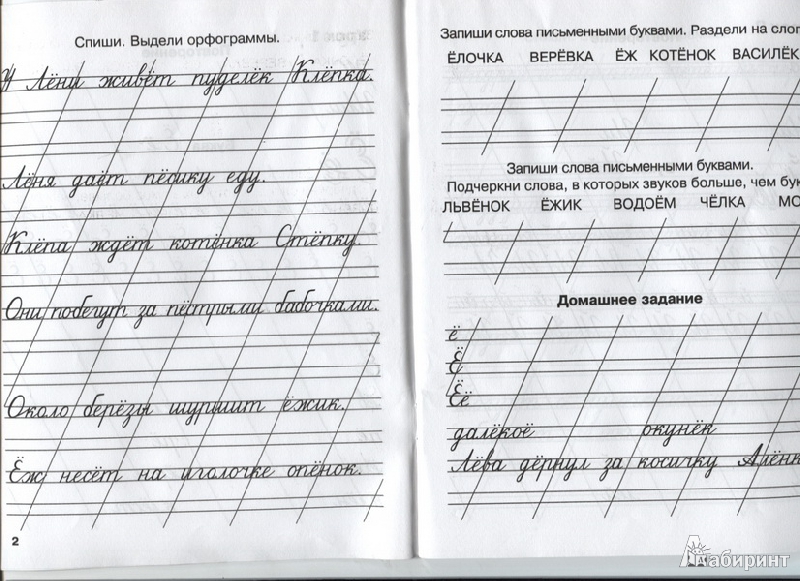 Спиши. Выдели орфограммы.
У Лёни живёт пуделёк Клёпка.
Лёня даёт пёсику еду.
Клёпа ждёт котёнка Стёпку.
Они побегут за пёстрыми бабочками.
Около берёзы шуршит ёжик.
Ёж несёт на иголочке опёнок.
2
Запиши слова письменными буквами. Раздели на слог
ЁЛОЧКА ВЕРЁВКА ЁЖ КОТЁНОК ВАСИЛЁК
Запиши слова письменными буквами.
Подчеркни слова, в которых звуков больше, чем бук
ЛЬВЁНОК ЁЖИК ВОДОЁМ ЧЁЛКА МО
Домашнее задание
ё
Ё
Ёё
далёкое окунёк
Лёва дёрнул за косичку Алёнк
Лабиринт